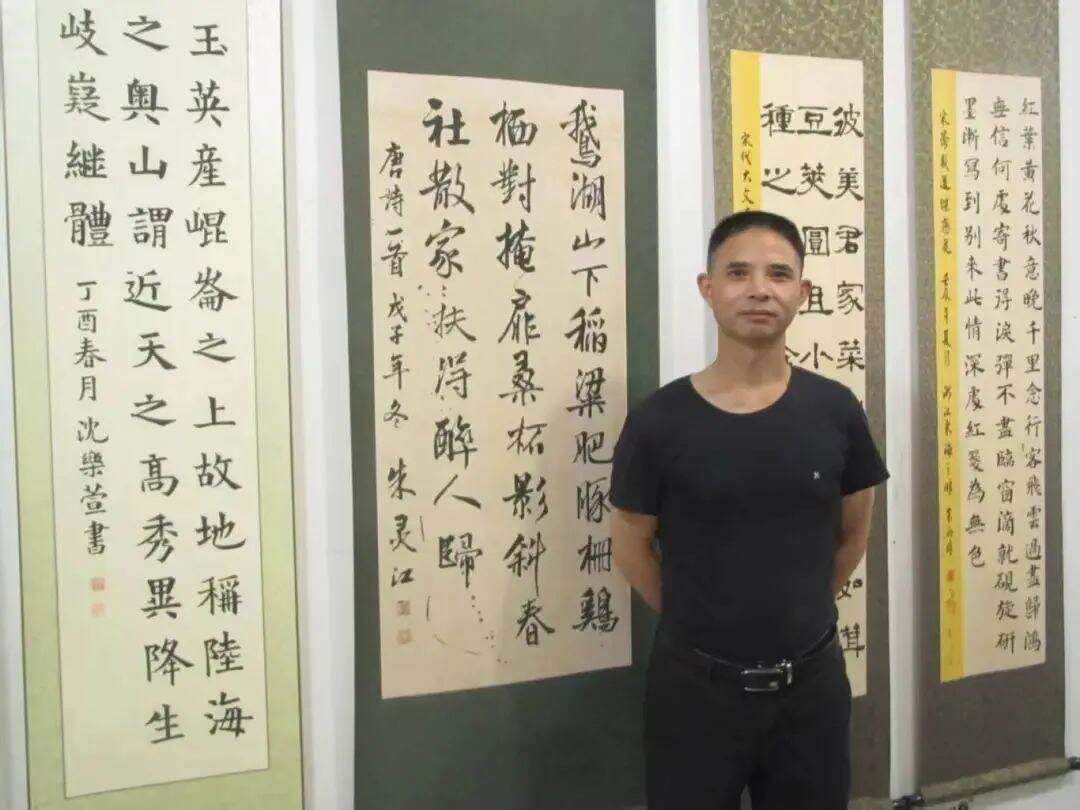 玉英産崐崙之上故地稱陸海
之奥山謂近天之高秀異降生
岐嶷継體
丁酉春月沈樂萱書
鵝湖山下稻粱肥豚柵鷄
栖對掩扉桑柘影斜春
社散家扶得醉人歸
唐詩一首 戊子年冬 朱灵江
彼美君家菜
如茸
豆莢圓且小
種之
宋代大文
紅葉黄花秋意晚千里念行客飛雲過盡歸鴻
無信何處寄書得淚彈不盡臨窗滴就硯旋研
墨漸寫到别來此情深處紅箋為無色
宋晏幾道 壬辰年夏月